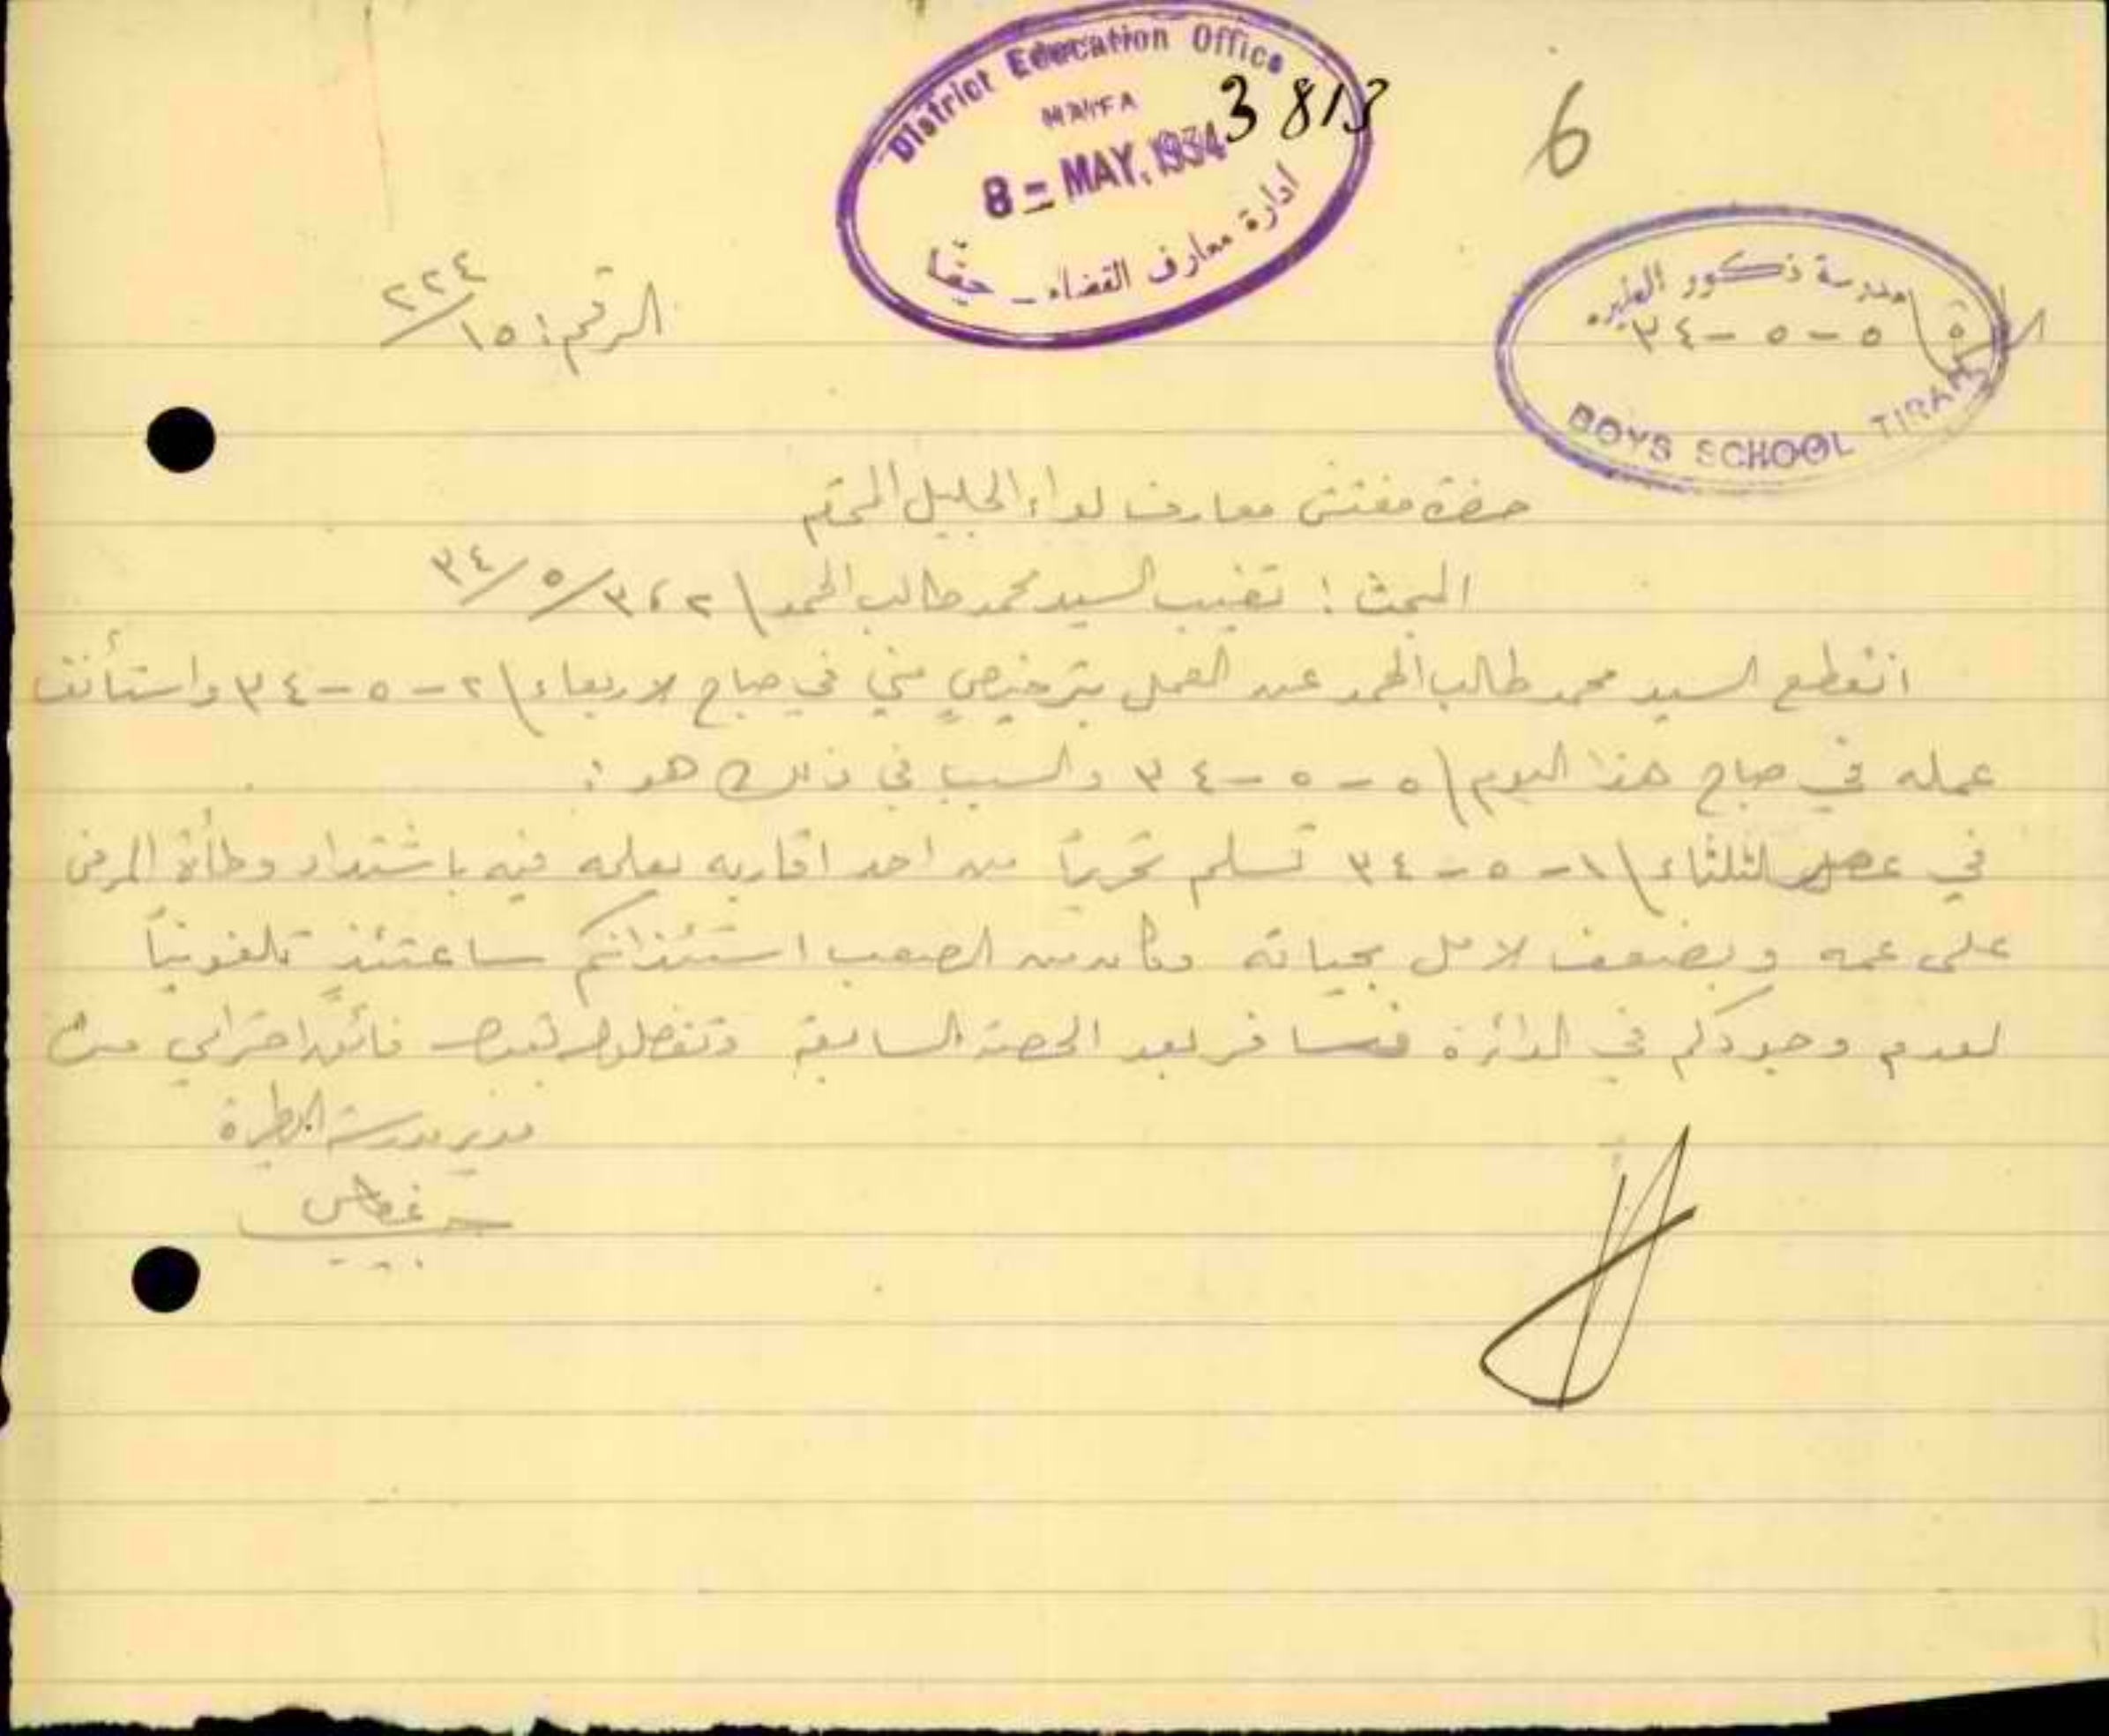 District Education Office
HAIFA
3813
8 - MAY. 1934
ادارة معارف القضاء - حيفا
6
مدرسة ذكور الطيره
٥ - ٥ - ٣٤
BOYS SCHOOL TIRAH
الرقم: ١٥/٢٢٤
حضرة مفتش معارف لواء الجليل المحترم
البحث: تغيب السيد محمد طالب الحمد \ ٣،٢/٥/٣٤
انقطع السيد محمد طالب الحمد عن العمل بترخيصٍ مني في صباح الاربعاء \ ٢-٥-٣٤ واستأنف
عمله في صباح هذا اليوم \ ٥-٥-٣٤ والسبب في ذلك هو:
في عصر الثلثاء \ ١-٥-٣٤ تسلم تحريراً من احد اقاربه يعلمه فيه باشتداد وطأة المرض
على عمه وبضعف الامل بحياته وكان من الصعب استئذانكم ساعتئذٍ تلفونياً
لعدم وجودكم في الدائرة فسافر بعد الحصة السابعة وتفضلوا بقبول فائق احترامي
مدير مدرسة الطيرة